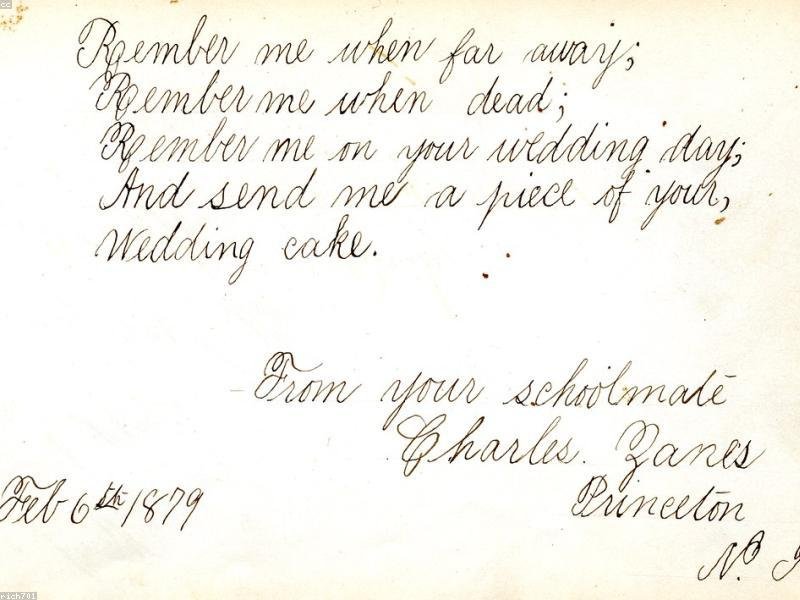 Rember me when far away;
Rember me when dead;
Rember me on your wedding day;
And send me a piece of your,
Wedding cake.
From your schoolmate
Charles. Zanes
Feb 6th 1879
Princeton
N.
rich701